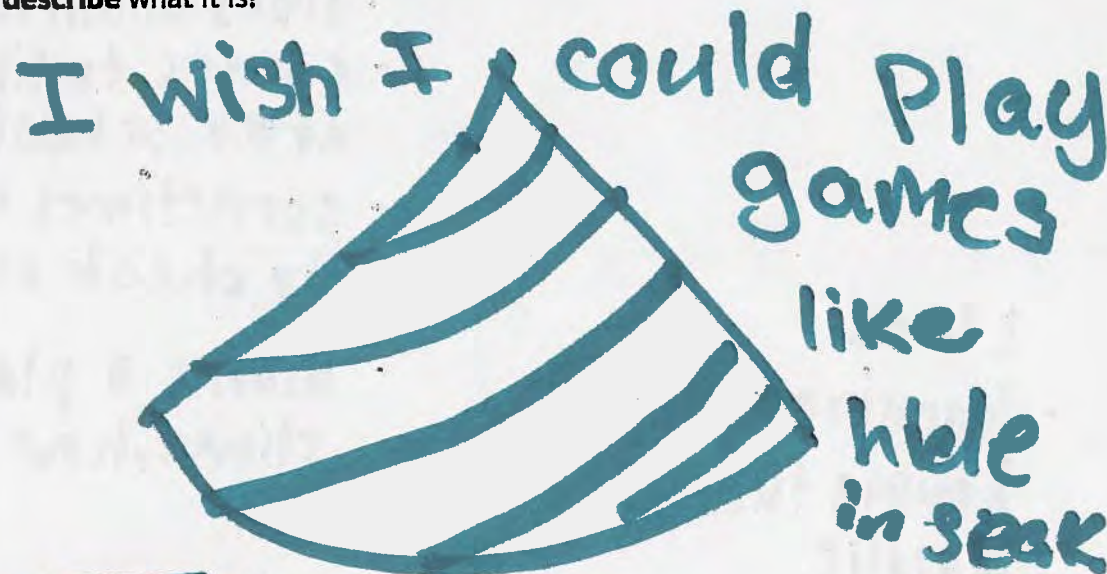 describe what it is!
I wish I could Play
games
like
hide
in seak